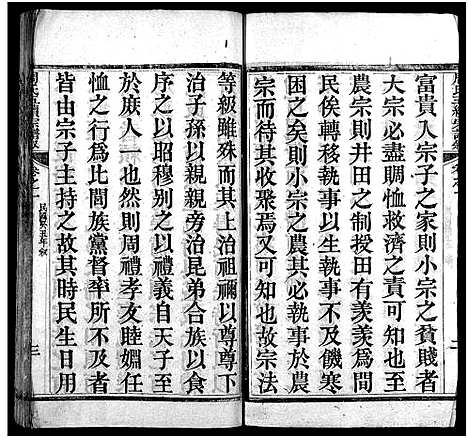 富貴人宗子之家則小宗之貧賤者
大宗必盡賙恤救濟之責可知也
農宗則井田之制授田有羨羨爲閒
民俟轉以執事以生執事不及饑寒
困之矣則小宗之農其執事於大
宗而待其收聚焉又可知故宗法
等級雖殊而其上治祖禰以尊尊下
治子孫以親親旁治昆弟合族以食
序之以昭穆别之以禮義自天子至
於庶人一也然則周禮孝友睦婣任
恤之行爲比閭族黨督率所不及者
皆由宗子主持之故其時民生日用
三